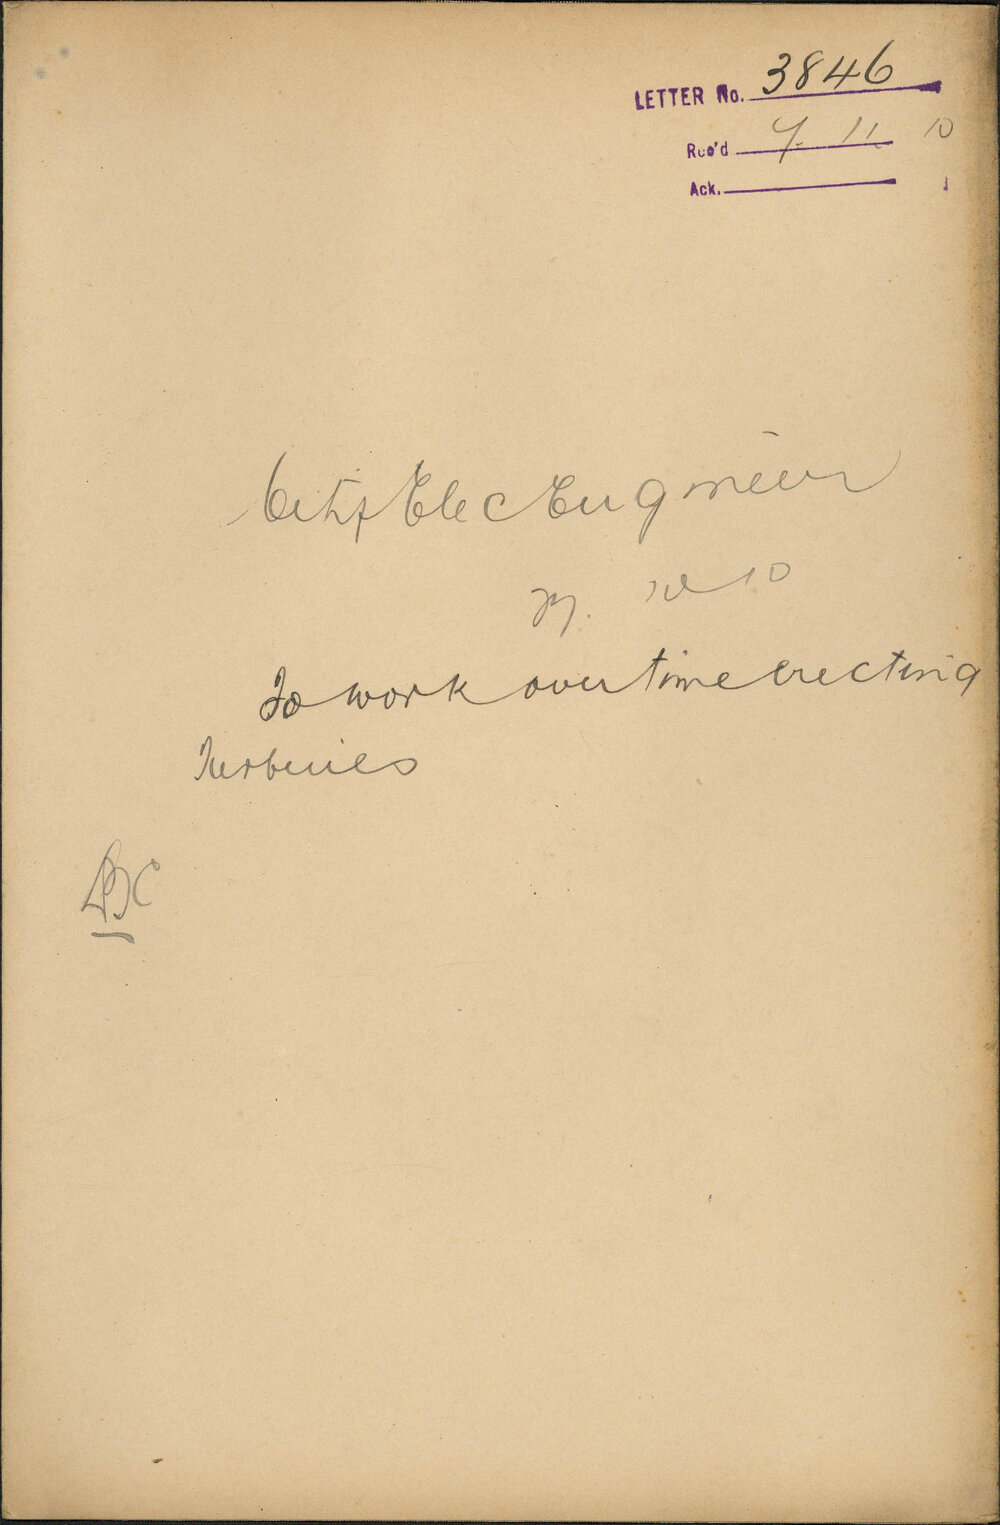 LETTER No. 3846
Rec'd 7. 11 10
Ack.
City Elec Engineer
To work overtime erecting
Turbines